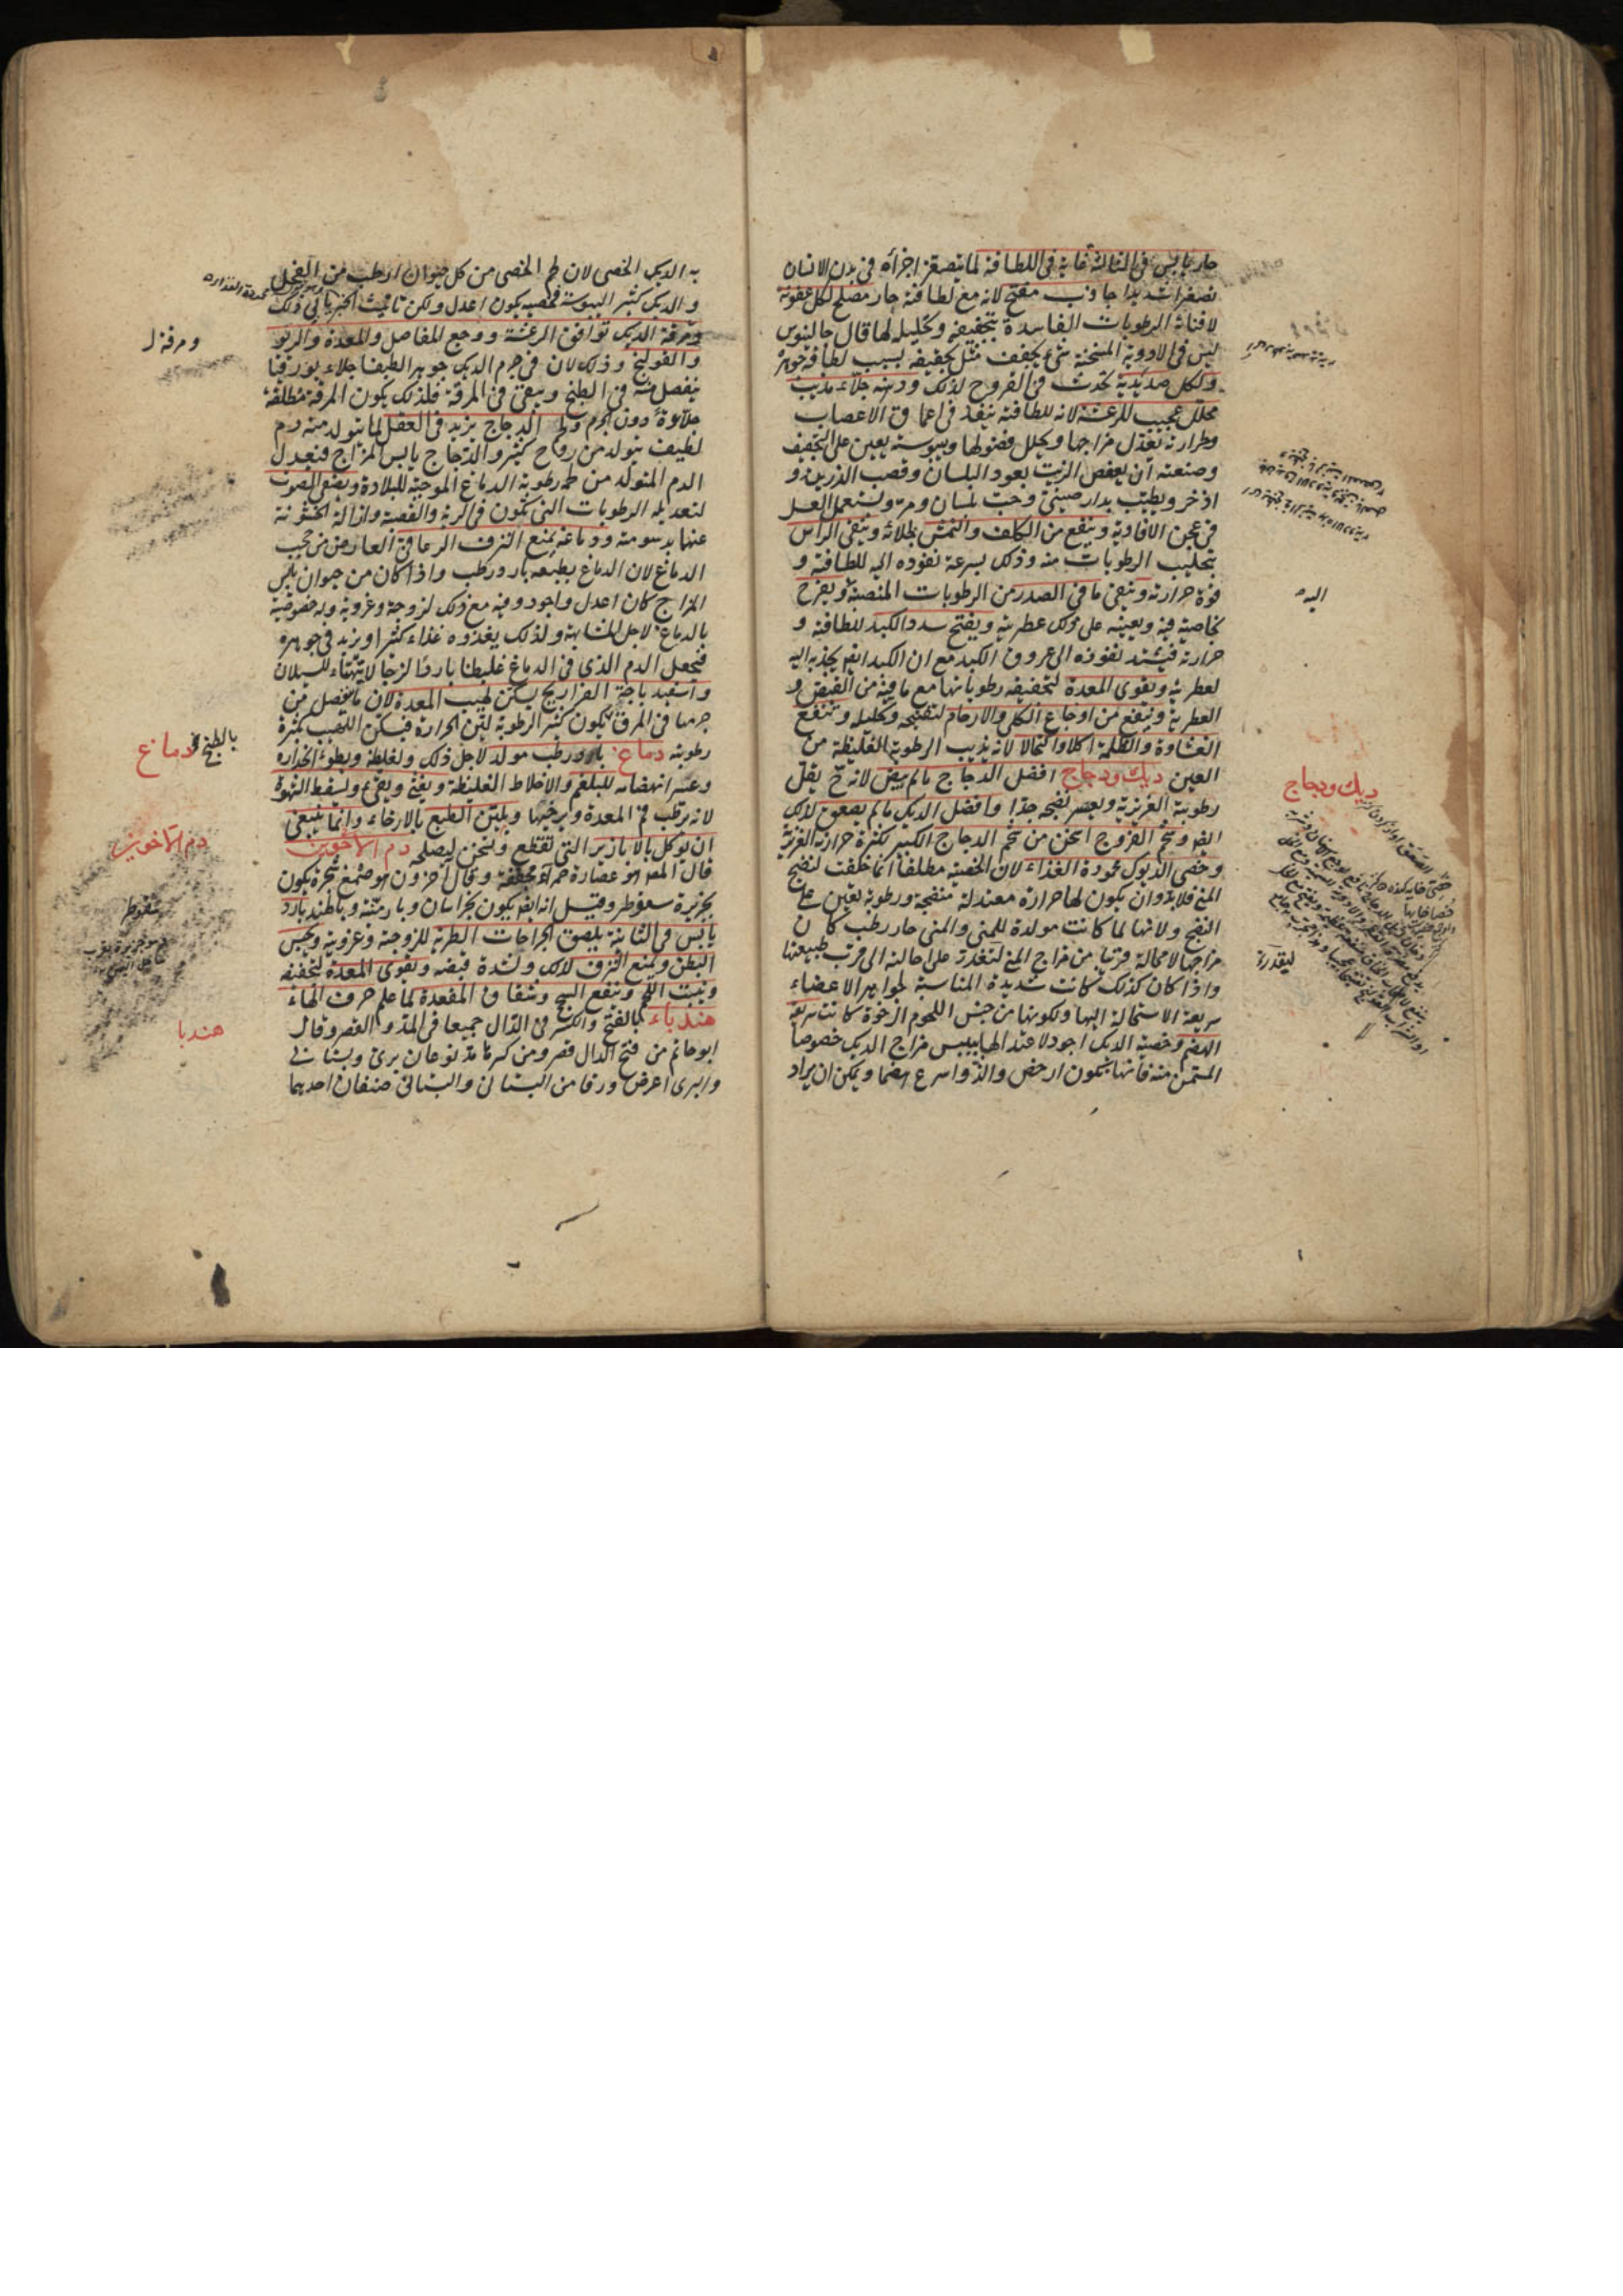 حار يابس فى الثالثة غاية فى اللطافة لما يتصغر اجزاؤه فى بدن الانسان
تصغرا شديدا جاذب مفتح لانه مع لطافته حار مصلح لكل عفونة
لافنائه الرطوبات الفاسدة بتجفيفه وتحليله لها قال جالينوس
ليس فى الادوية المسخنة شىء يجفف مثل تجفيفه بسبب لطافة جوهره
ولكل صديدية تحدث فى القروح لذلك ودهنه جلاء مذيب
محلل عجيب للرعشة لانه للطافته ينفذ فى اعماق الاعصاب
وحرارته تعدل مزاجها ويحلل فضولها ويبوسته يعين على التجفيف
وصنعته ان يعفص الزيت بعود البلسان وقصب الذريرة و
اذخر ويطيب بدار صينى وحب بلسان ومر ويستعمل العسل
فى عجن الافاوية وينفع من الكلف والنمش بجلائه وينقى الراس
بتحليب الرطوبات منه وذلك بسرعة نفوذه اليه للطافته و
قوة حرارته وينقى ما فى الصدر من الرطوبات المنصبة ويفرح
بخاصية فيه ويعينه على ذلك عطريته ويفتح سدد الكبد للطافته و
حرارته فيشتد نفوذه الى عروق الكبد مع ان الكبد ايضا يجذبه اليه
لعطريته ويقوى المعدة لتجفيفه رطوباتها مع ما فيه من القبض و
العطرية وينفع من اوجاع الكلى والارحام لتفتيحه وتحليله وينفع
الغشاوة والظلمة اكلا واكتحالا لانه يذيب الرطوبة الغليظة من
العين ديك ودجاج افضل الدجاج ما لم يبض لانه ح يقل
رطوبته الغريزية ويعسر نضجه جدا وافضل الديك ما لم يصعق لذلك
ايضا وشحم الفروج اسخن من شحم الدجاج الكبير لكثرة حرارته الغريزية
وخصى الديوك محمودة الغذاء لان الخصية مطلقا انما خلقت لنضج
المنى فلابد وان يكون لها حرارة معتدلة منضجة ورطوبة تعين على
النضج ولانها لما كانت مولدة للمنى والمنى حار رطب كان
مزاجها لا محالة قريبا من مزاج المنى لتقدر على احالته الى قرب طبيعتها
واذا كان كذلك كانت شديدة المناسبة لجواهر الاعضاء
سريعة الاستحالة اليها ولكونها من جنس اللحوم الرخوة كانت سريعة
الهضم وخصية الديك اجود لاعتدالها بيبس مزاج الديك خصوصا
المسمن منه فانها يكون ارخص والذ واسرع هضما ويمكن ان يراد
اليه
ديك ودجاج
ليقدر
به الديك الخصى لان لحم الخصى من كل حيوان ارطب من الفحل
والديك كثير اليبوسة فخصيه يكون اعدل ولكن تانيث الخبر يابى ذلك
ومرقة الديك توافق الرعشة ووجع المفاصل والمعدة والربو
والقولنج وذلك لان فى جرم الديك جوهرا لطيفا جلاء بورقيا
ينفصل منه فى الطبخ ويبقى فى المرقة فلذلك يكون المرقة مطلقة
جلاءة دون الجرم ولحم الدجاج يزيد فى العقل لما يتولد منه دم
لطيف يتولد من روح كثير والدجاج يابس المزاج فيعدل
الدم المتولد من لحمه رطوبة الدماغ الموجبة للبلادة ويصفى الصوت
لتعديله الرطوبات التى تكون فى الرئة والقصبة وازالة الخشونة
عنها بدسومته ودماغه يمنع النزف الرعافى العارض من حجب
الدماغ لان الدماغ بطبعه بارد رطب واذا كان من حيوان يابس
المزاج كان اعدل واجود وفيه مع ذلك لزوجة وغروية وله خصوصية
بالدماغ لاجل المشابهة ولذلك يغذوه غذاء كثيرا ويزيد فى جوهره
فيجعل الدم الذى فى الدماغ غليظا باردا لزجا لا يتهيأ للسيلان
واسفيدباجة الفراريج يسكن لهيب المعدة لان ما ينفصل من
جرمها فى المرق يكون كثير الرطوبة لين الحرارة فيسكن اللهيب بكثرة
رطوبته دماغ بارد رطب مولد لاجل ذلك ولغلظه وبطوء انحداره
وعسر انهضامه للبلغم والاخلاط الغليظة ويغثى ويقىء ويسقط الشهوة
لانه يرطب فم المعدة ويرخيها ويلين الطبع بالارخاء وانما ينبغى
ان يوكل بالابازير التى تقطع وتسخن ليصلحه دم الاخوين
قال المص هو عصارة حمراء مجففة وقال اخرون هو صمغ شجرة يكون
بجزيرة سقوطر وقيل انه ايضا يكون بخراسان وبارمنية وبالهند بارد
يابس فى الثانية يلصق الجراحات الطرية للزوجته وغرويته ويحبس
البطن ويمنع النزف لذلك ولشدة قبضه ويقوى المعدة لتجفيفه
وينبت اللحم وينفع السحج وشقاق المقعدة لما علم حرف الهاء
هندباء بالفتح والكسر فى الدال جميعا فى المد والقصر وقال
ابو حاتم من فتح الدال قصر ومن كسرها مد نوعان برى وبستانى
والبرى اعرض ورقا من البستانى والبستانى صنفان احدهما
ومرقة
بالطبخ
دماغ
دم الاخوين
سقوطر
هندبا